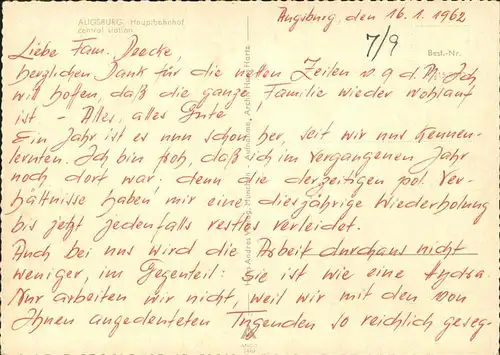 AUGSBURG, Hauptbahnhof
central station
Augsburg, den 16.1.1962
7/9
Best.-Nr.
Liebe Fam. Doecke,
herzlichen Dank für die netten Zeilen v. 9. d. M. Ich
will hoffen, daß die ganze Familie wieder wohlauf
ist – Alles, alles Gute!
Ein Jahr ist es nun schon her, seit wir uns kennen-
lernten. Ich bin froh, daß ich im vergangenen Jahr
noch dort war; denn die derzeitigen pol. Ver-
hältnisse haben mir eine diesjährige Wiederholung
bis jetzt jedenfalls restlos verleidet.
Auch bei uns wird die Arbeit durchaus nicht
weniger, im Gegenteil: Sie ist wie eine Hydra.
Nur arbeiten wir nicht, weil wir mit den von
Ihnen angedeuteten Tugenden so reichlich geseg-